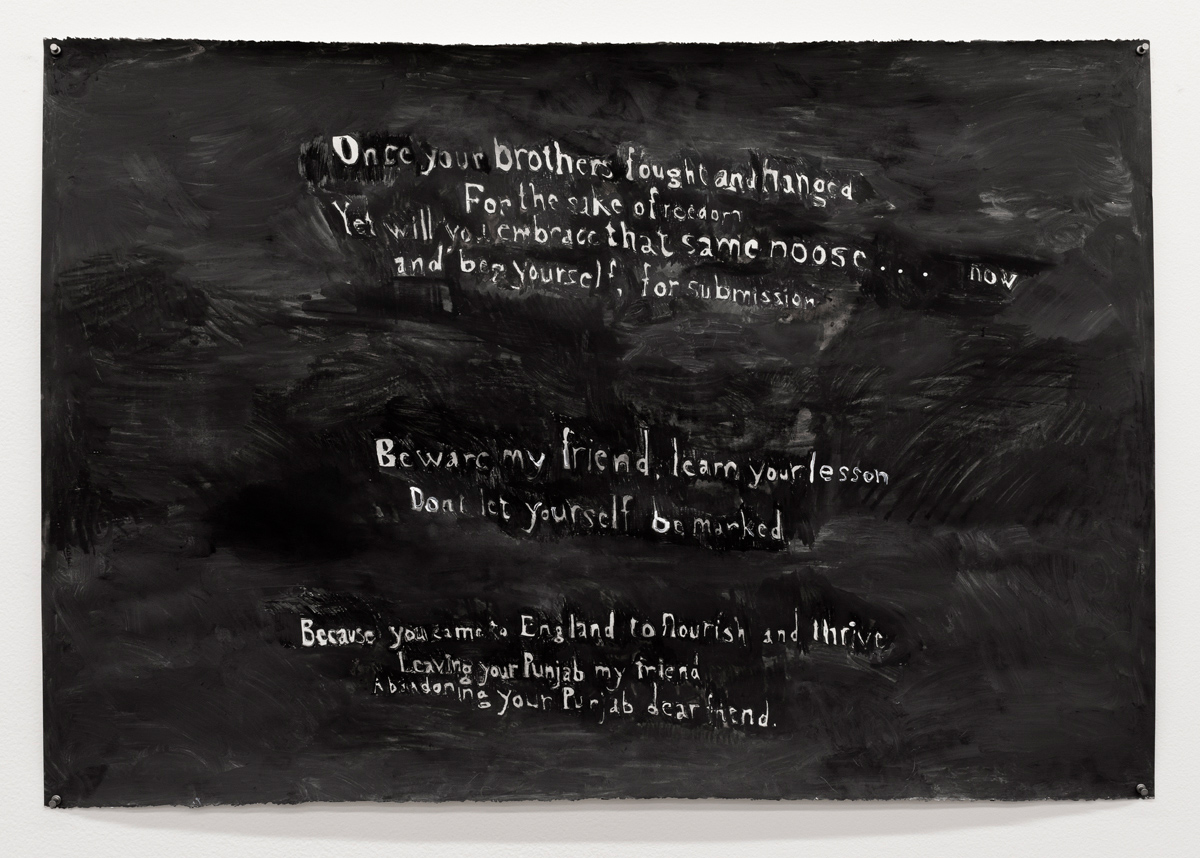 Once your brothers fought and hanged
For the sake of freedom
Yet will you embrace that same noose... now
and beg yourself, for submission
Beware my friend, learn your lesson
Dont let yourself be marked
Because you came to England to flourish and thrive
Leaving your Punjab my friend
Abandoning your Punjab dear friend.